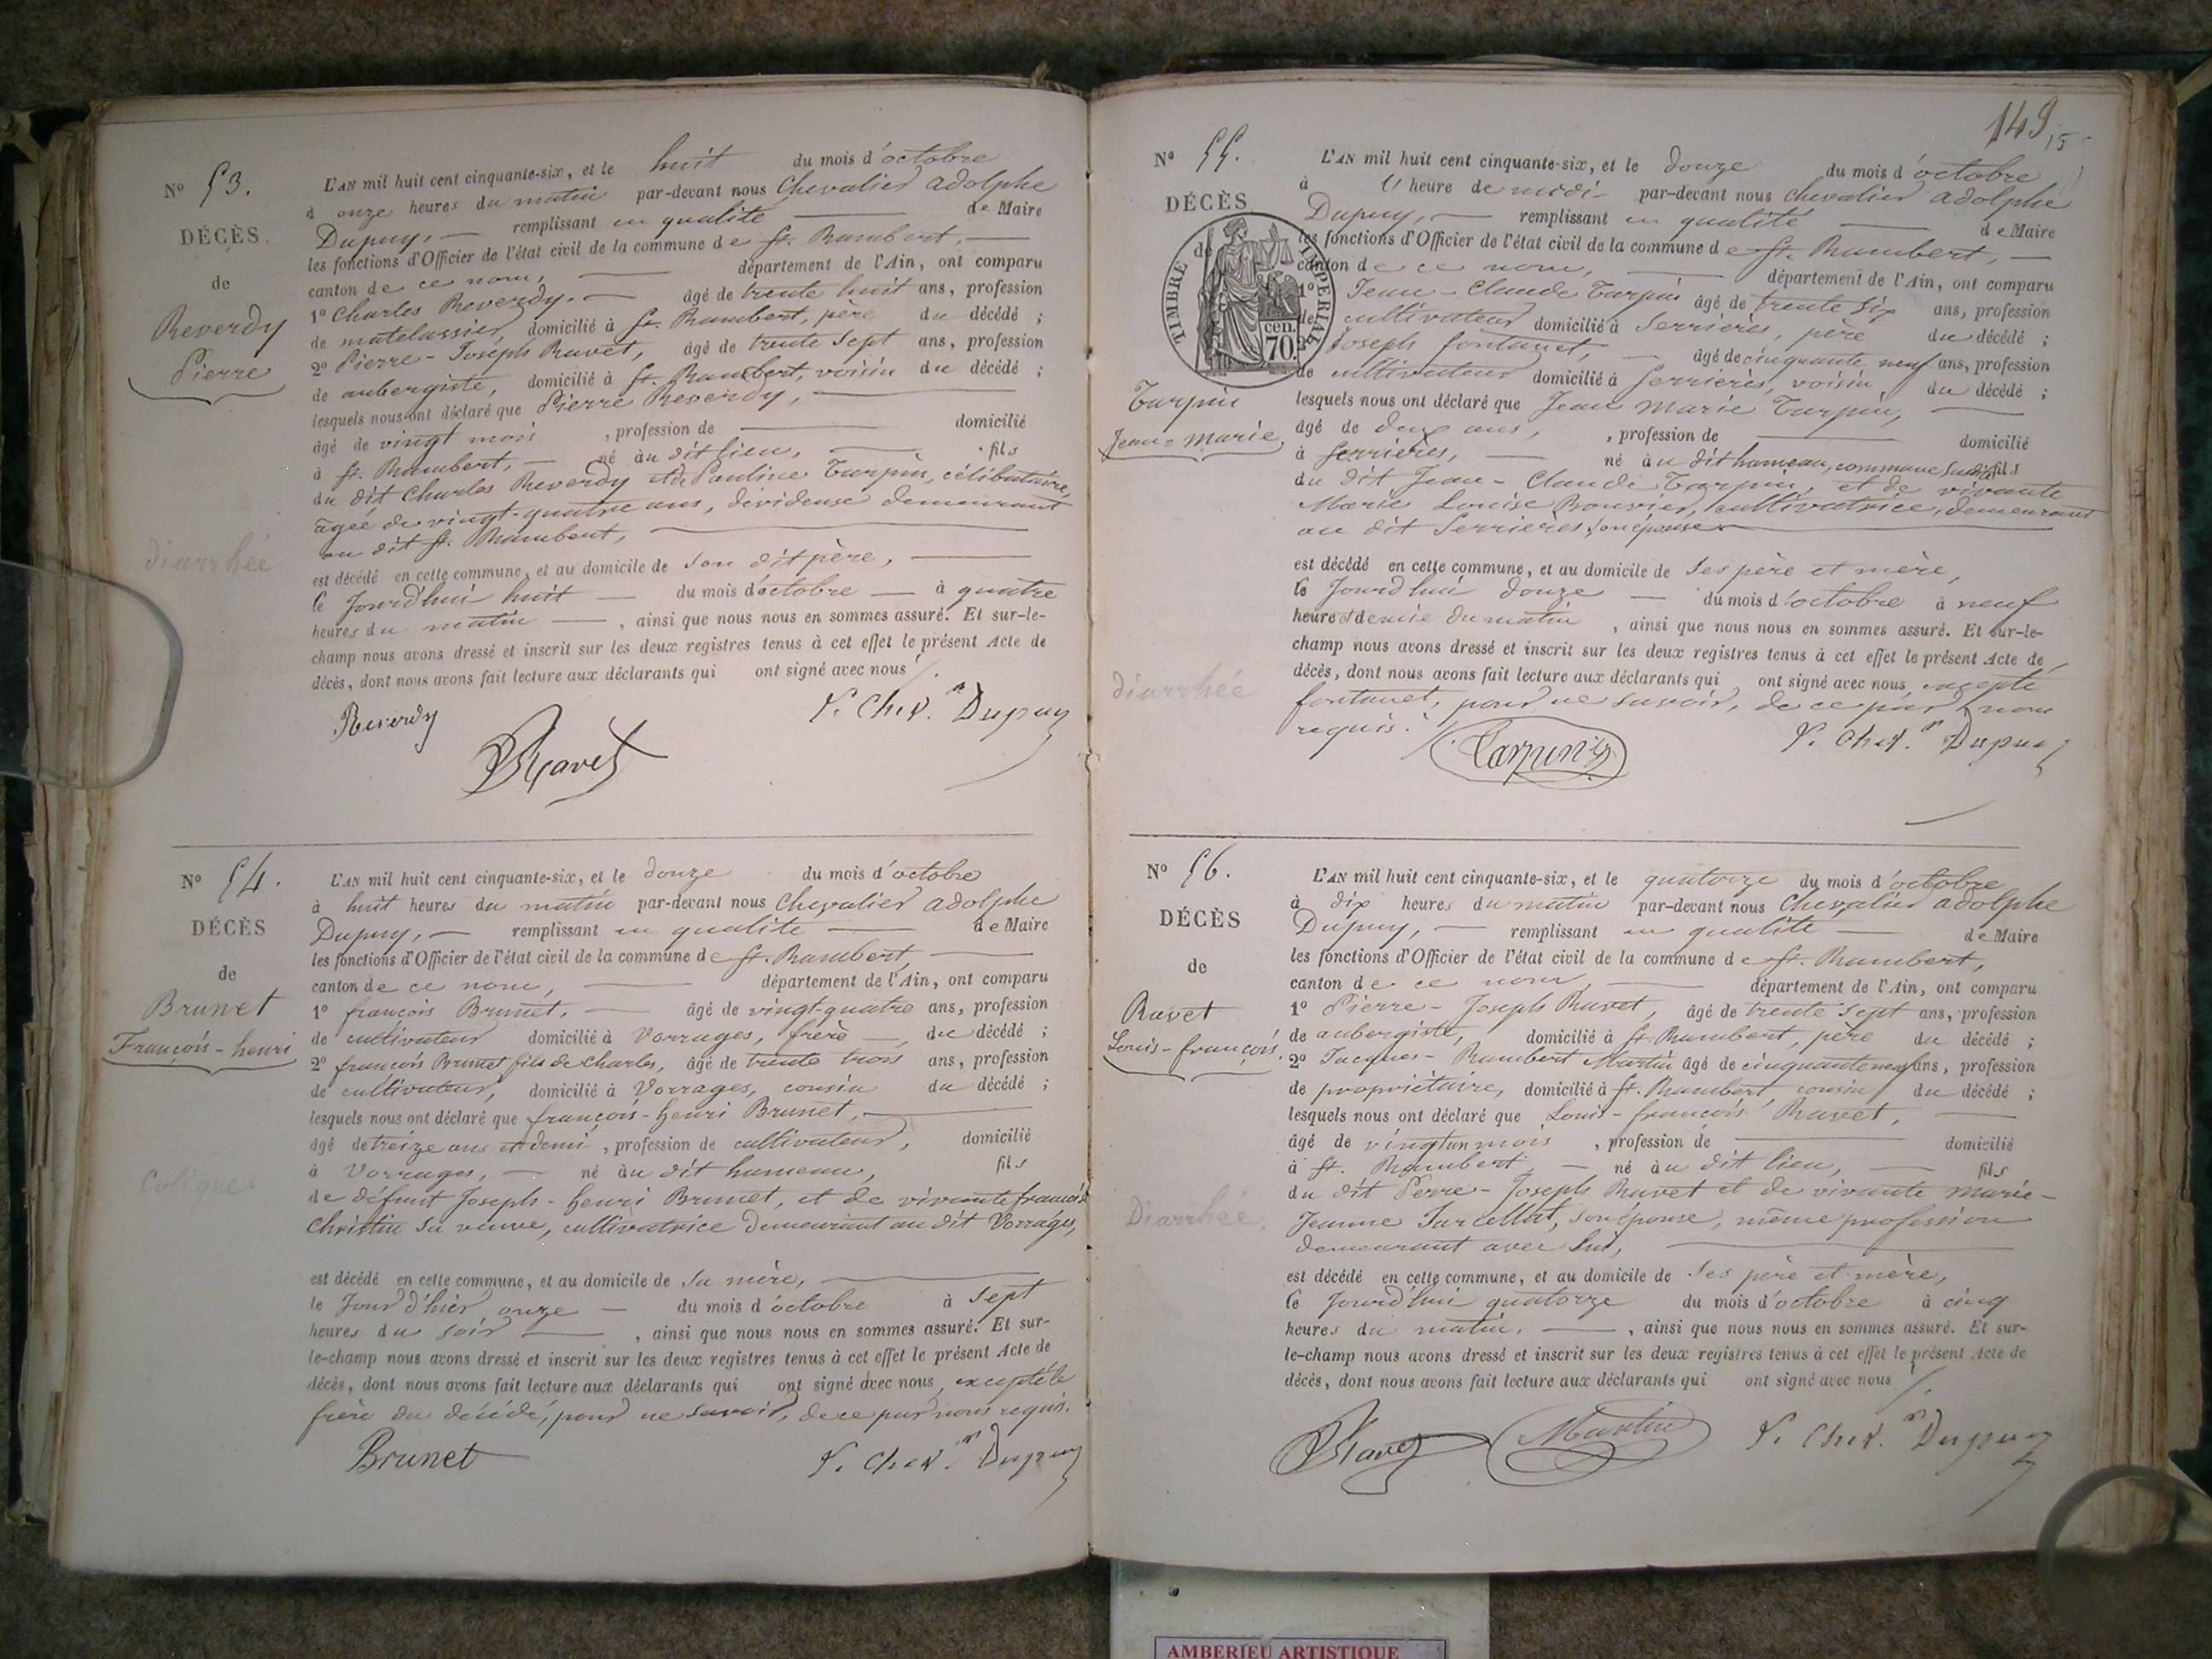 N° 53.
DÉCÈS.
de
Reverdy
Pierre
diarrhée
L'AN mil huit cent cinquante-six, et le huit du mois d'octobre
à onze heures du matin par-devant nous Chevalier adolphe
Dupuy, — remplissant en qualité — de Maire
les fonctions d'Officier de l'état civil de la commune de St. Rambert, —
canton de ce nom, — département de l'Ain, ont comparu
1° Charles Reverdy, — âgé de trente huit ans, profession
de matelassier, domicilié à St. Rambert, père du décédé ;
2° Pierre-Joseph Ravet, âgé de trente sept ans, profession
de aubergiste, domicilié à St. Rambert, voisin du décédé ;
lesquels nous ont déclaré que Pierre Reverdy, —
âgé de vingt mois , profession de — domicilié
à St. Rambert, — né au dit lieu, — fils
du dit Charles Reverdy et de Pauline Turpin, célibataire,
âgée de vingt-quatre ans, devideuse demeurant
au dit St. Rambert, —
est décédé en cette commune, et au domicile de son dit père, —
le Jourd'hui huit — du mois d'octobre — à quatre
heures du matin — , ainsi que nous nous en sommes assuré. Et sur-le-
champ nous avons dressé et inscrit sur les deux registres tenus à cet effet le présent Acte de
décès, dont nous avons fait lecture aux déclarants qui ont signé avec nous
Reverdy
Ravet
Chev. Dupuy
N° 54.
DÉCÈS
de
Brunet
François-henri
Coliques
L'AN mil huit cent cinquante-six, et le douze du mois d'octobre
à huit heures du matin par-devant nous Chevalier adolphe
Dupuy, — remplissant en qualité — de Maire
les fonctions d'Officier de l'état civil de la commune de St. Rambert, —
canton de ce nom, — département de l'Ain, ont comparu
1° françois Brunet, — âgé de vingt-quatre ans, profession
de cultivateur domicilié à Vorrages, frère —, du décédé ;
2° françois Brunet fils de Charles, âgé de trente trois ans, profession
de cultivateur, domicilié à Vorrages, cousin du décédé ;
lesquels nous ont déclaré que françois-henri Brunet, —
âgé de treize ans et demi, profession de cultivateur, domicilié
à Vorrages, — né au dit hameau, fils
de défunt Joseph-henri Brunet, et de vivante françoise
Christin sa veuve, cultivatrice demeurant au dit Vorrages,
est décédé en cette commune, et au domicile de sa mère, —
le Jour d'hier onze — du mois d'octobre à sept
heures du soir — , ainsi que nous nous en sommes assuré. Et sur-
le-champ nous avons dressé et inscrit sur les deux registres tenus à cet effet le présent Acte de
décès, dont nous avons fait lecture aux déclarants qui ont signé avec nous, excepté le
frère du décédé, pour ne savoir, de ce par nous requis.
Brunet
Chev. Dupuy
149
N° 55.
DÉCÈS
de
TIMBRE IMPÉRIAL
70 cen.
Turpin
Jean-Marie
diarrhée
L'AN mil huit cent cinquante-six, et le douze du mois d'octobre
à heure de midi — par-devant nous chevalier adolphe
Dupuy, — remplissant en qualité — de Maire
les fonctions d'Officier de l'état civil de la commune de St. Rambert, —
canton de ce nom, — département de l'Ain, ont comparu
1° Jean-Claude Turpin âgé de trente six ans, profession
de cultivateur domicilié à Serrières, père du décédé ;
2° Joseph fontanet, — âgé de cinquante neuf ans, profession
de cultivateur domicilié à Serrières, voisin du décédé ;
lesquels nous ont déclaré que Jean Marie Turpin, —
âgé de deux ans, , profession de — domicilié
à Serrières, — né au dit hameau, commune susdite fils
du dit Jean-Claude Turpin, et de vivante
Marie Louise Bouvier, cultivatrice, demeurant
au dit Serrières, son épouse. —
est décédé en cette commune, et au domicile de ses père et mère,
le Jourd'hui douze — du mois d'octobre à neuf
heures et demie du matin , ainsi que nous nous en sommes assuré. Et sur-le-
champ nous avons dressé et inscrit sur les deux registres tenus à cet effet le présent Acte de
décès, dont nous avons fait lecture aux déclarants qui ont signé avec nous, excepté
fontanet, pour ne savoir, de ce par nous
requis.
Chev. Dupuy
N° 56.
DÉCÈS
de
Ravet
Louis-françois.
Diarrhée,
L'AN mil huit cent cinquante-six, et le quatorze du mois d'octobre
à dix heures du matin par-devant nous Chevalier adolphe
Dupuy, — remplissant en qualité — de Maire
les fonctions d'Officier de l'état civil de la commune de St. Rambert,
canton de ce nom, — département de l'Ain, ont comparu
1° Pierre-Joseph Ravet, âgé de trente sept ans, profession
de aubergiste, domicilié à St. Rambert, père du décédé ;
2° Jacques-Rambert Martin âgé de cinquante neuf ans, profession
de propriétaire, domicilié à St. Rambert, cousin du décédé ;
lesquels nous ont déclaré que Louis-françois Ravet, —
âgé de vingt un mois , profession de — domicilié
à St. Rambert, — né au dit lieu, — fils
du dit Perre-Joseph Ravet et de vivante Marie-
Jeanne son épouse, même profession
demeurant avec lui, —
est décédé en cette commune, et au domicile de ses père et mère,
le Jourd'hui quatorze du mois d'octobre à cinq
heures du matin. — , ainsi que nous nous en sommes assuré. Et sur-
le-champ nous avons dressé et inscrit sur les deux registres tenus à cet effet le présent Acte de
décès, dont nous avons fait lecture aux déclarants qui ont signé avec nous
Ravet
Martin
Chev. Dupuy
AMBERIEU ARTISTIQUE